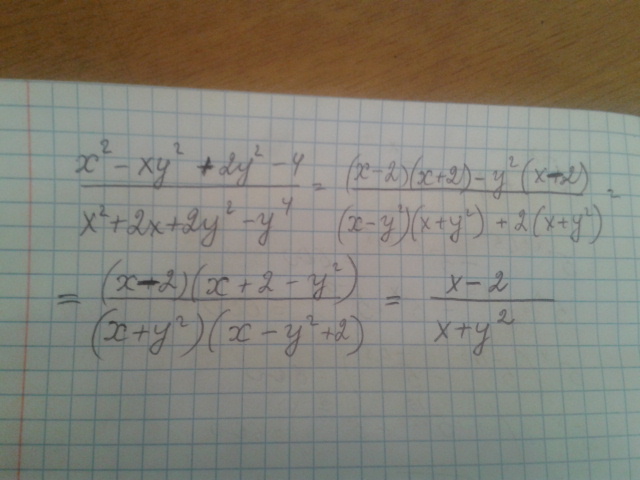 (x² − xy² + 2y² − 4)/(x² + 2x + 2y² − y⁴) = ((x−2)(x+2) − y²(x−2))/((x−y²)(x+y²) + 2(x+y²)) =
= ((x−2)(x+2−y²))/((x+y²)(x−y²+2)) = (x−2)/(x+y²)